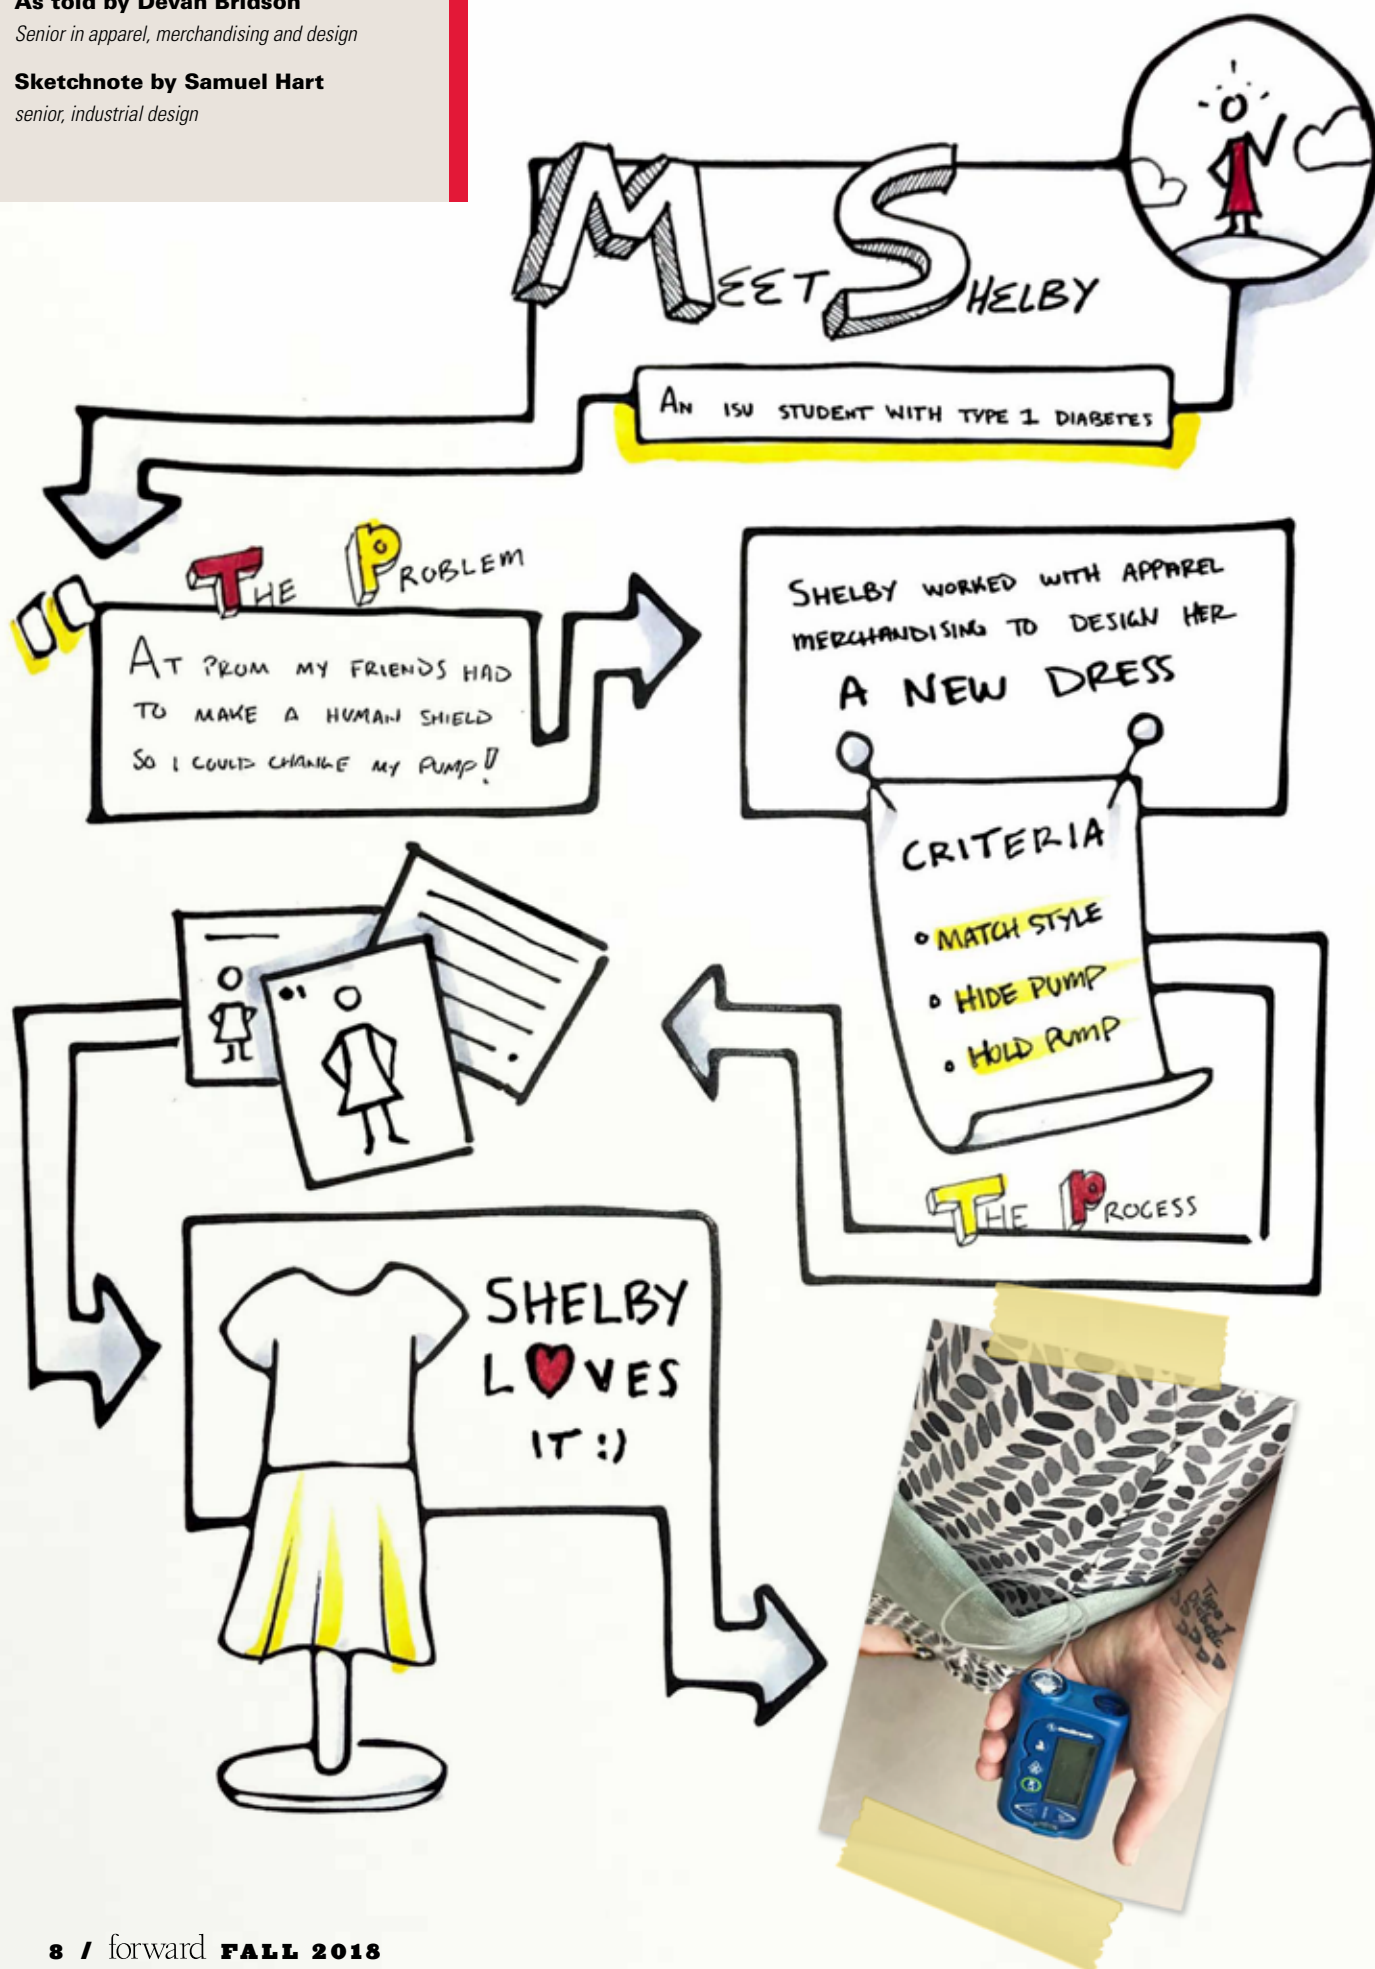 As told by Devan Bridson
Senior in apparel, merchandising and design
Sketchnote by Samuel Hart
senior, industrial design
MEET SHELBY
AN ISU STUDENT WITH TYPE 1 DIABETES
THE PROBLEM
"AT PROM MY FRIENDS HAD
TO MAKE A HUMAN SHIELD
SO I COULD CHANGE MY PUMP!"
SHELBY WORKED WITH APPAREL
MERCHANDISING TO DESIGN HER
A NEW DRESS
CRITERIA
• MATCH STYLE
• HIDE PUMP
• HOLD PUMP
THE PROCESS
SHELBY
L♥VES
IT :)
Type 1
Diabetic
Medtronic
8 / forward FALL 2018